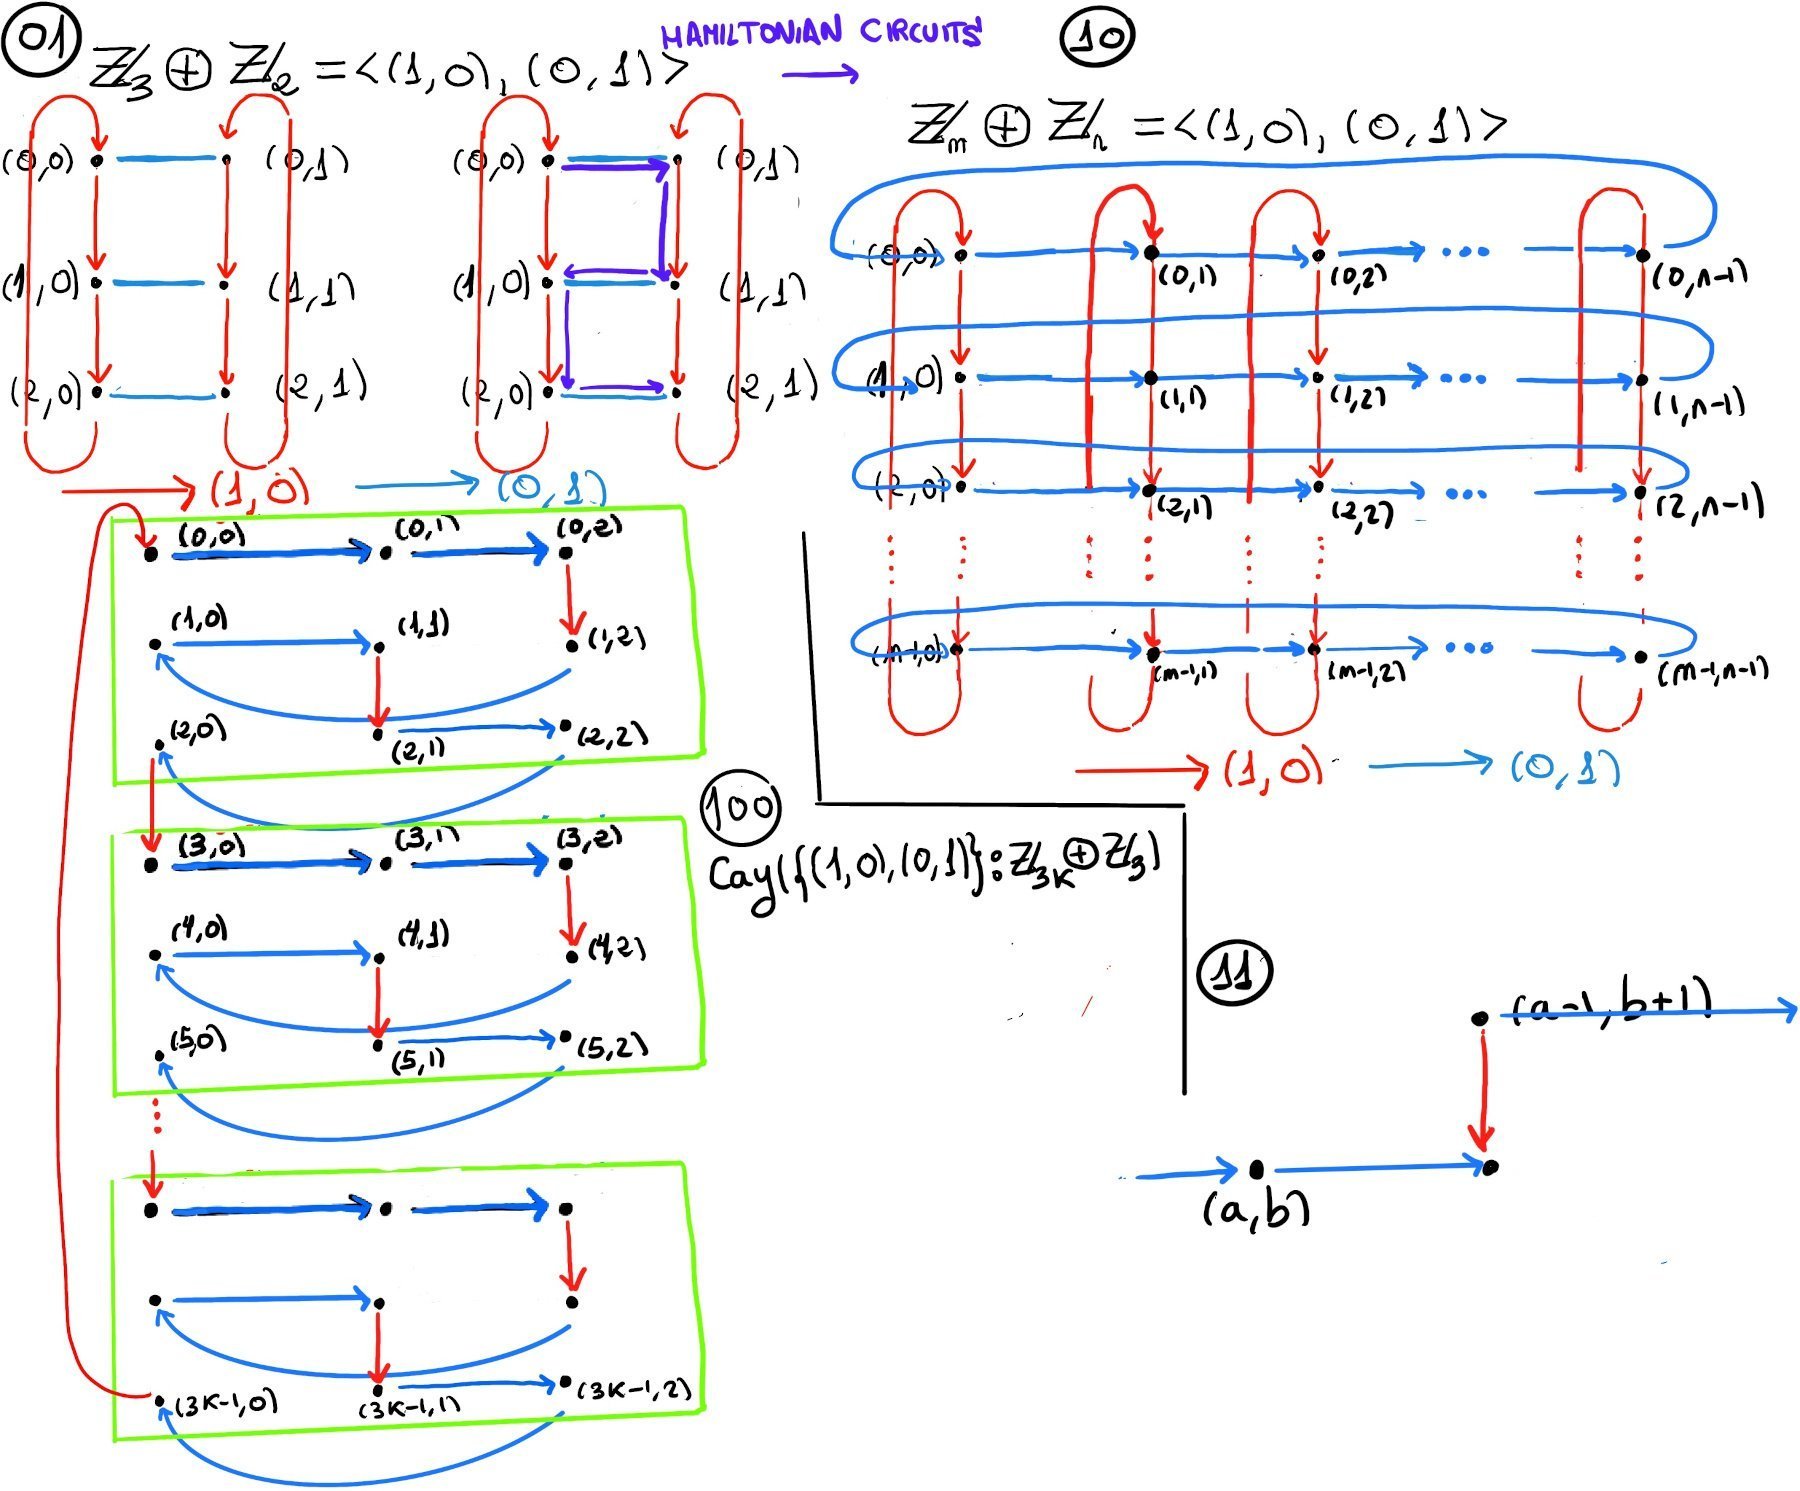 01
ℤ₃ ⊕ ℤ₂ = <(1,0), (0,1)>
HAMILTONIAN CIRCUITS
(0,0) (0,1)
(1,0) (1,1)
(2,0) (2,1)
(0,0) (0,1)
(1,0) (1,1)
(2,0) (2,1)
(1,0) (0,1)
10
ℤm ⊕ ℤn = <(1,0), (0,1)>
(0,0) (0,1) (0,2) ... (0,n-1)
(1,0) (1,1) (1,2) ... (1,n-1)
(2,0) (2,1) (2,2) ... (2,n-1)
(m-1,0) (m-1,1) (m-1,2) ... (m-1,n-1)
(1,0) (0,1)
(0,0) (0,1) (0,2)
(1,0) (1,1) (1,2)
(2,0) (2,1) (2,2)
(3,0) (3,1) (3,2)
(4,0) (4,1) (4,2)
(5,0) (5,1) (5,2)
(3K-1,0) (3K-1,1) (3K-1,2)
100
Cay({(1,0),(0,1)}:ℤ3K⊕ℤ3)
11
(a-1,b+1)
(a,b)